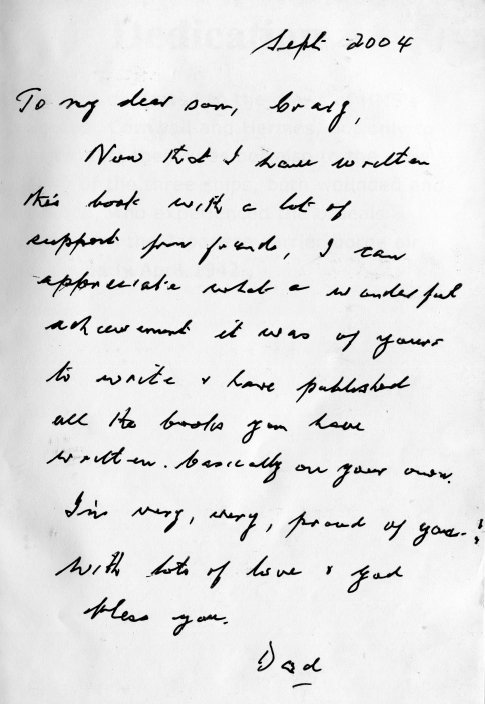 Sept 2004
To my dear son, Craig,
Now that I have written
this book with a lot of
support from friends, I can
appreciate what a wonderful
achievement it was of yours
to write & have published
all the books you have
written. basically on your own.
I'm very, very, proud of you!
With lots of love & god
bless you.
Dad